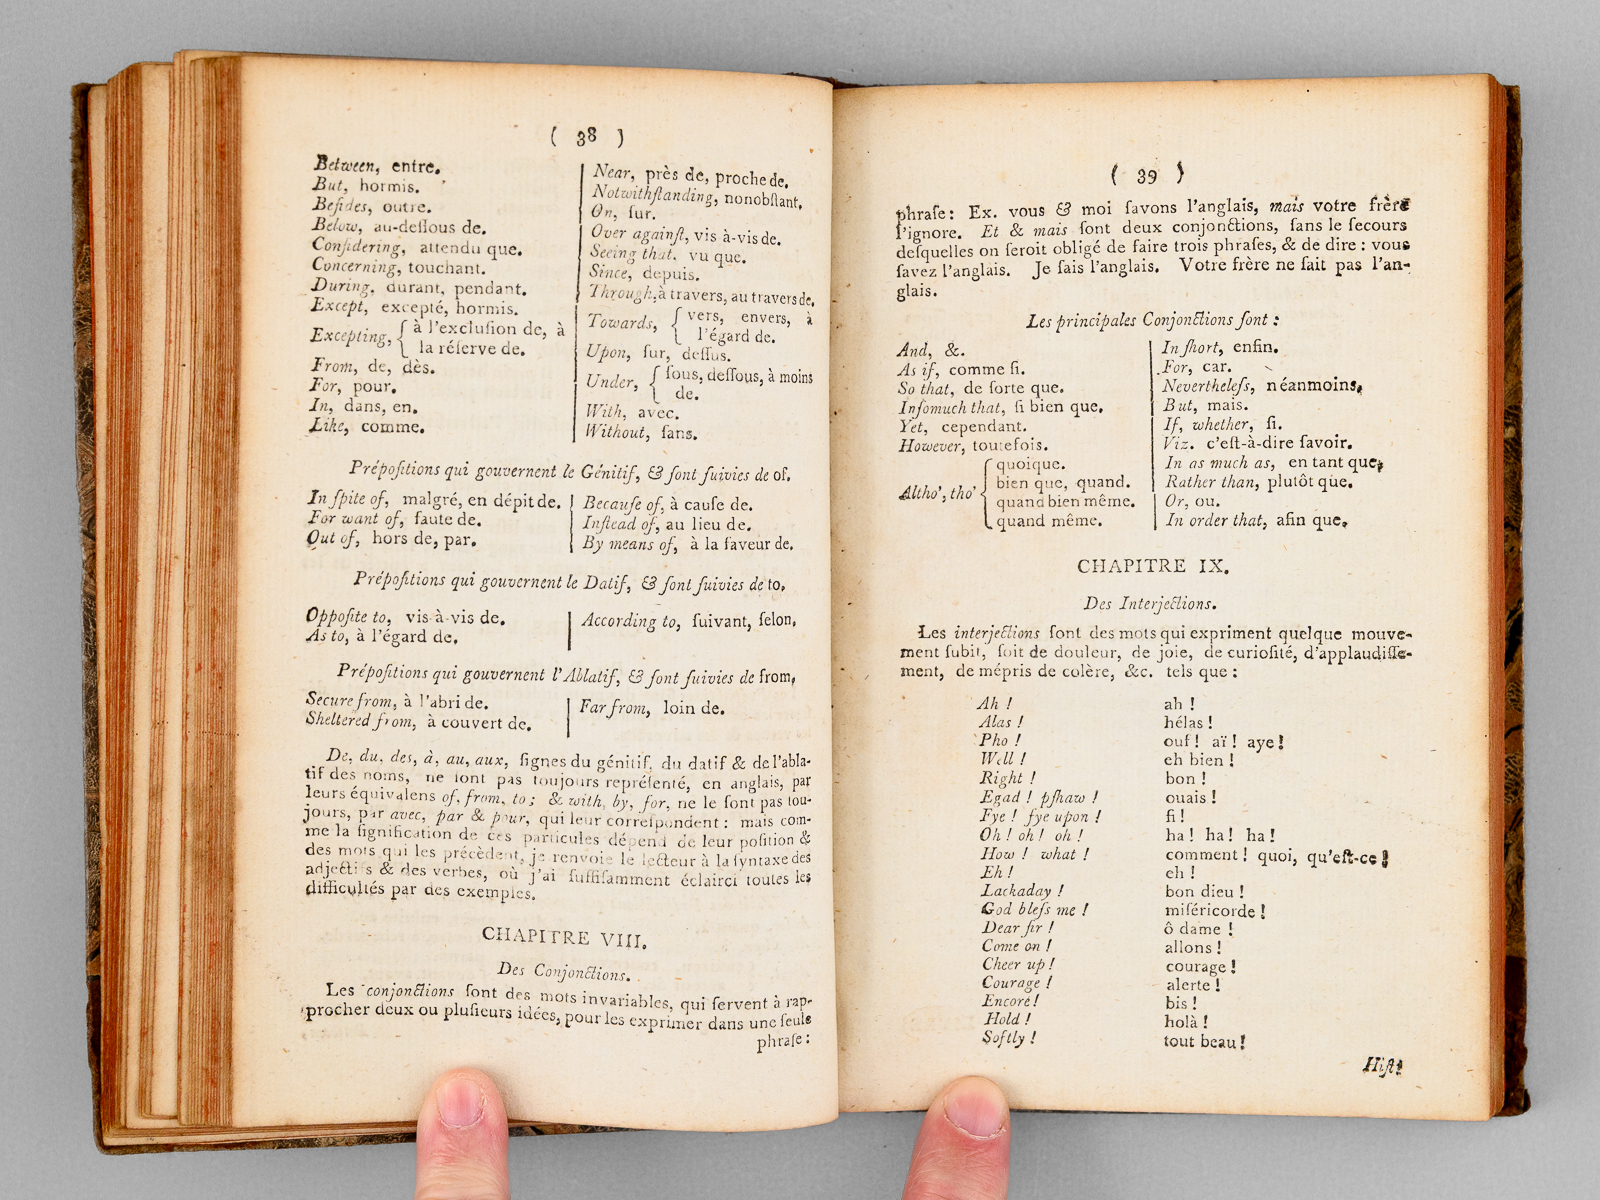 ( 38 )
Between, entre.
But, hormis.
Beſides, outre.
Below, au-deſſous de.
Conſidering, attendu que.
Concerning, touchant.
During, durant, pendant.
Except, excepté, hormis.
Excepting, { à l'excluſion de, à
la réſerve de.
From, de, dès.
For, pour.
In, dans, en.
Like, comme.
Near, près de, proche de.
Notwithſtanding, nonobſtant.
On, ſur.
Over againſt, vis à-vis de.
Seeing that, vu que.
Since, depuis.
Through, à travers, au travers de.
Towards, { vers, envers, à
l'égard de.
Upon, ſur, deſſus.
Under, { ſous, deſſous, à moins
de.
With, avec.
Without, ſans.
Prépoſitions qui gouvernent le Génitif, & ſont ſuivies de of.
In ſpite of, malgré, en dépit de.
For want of, faute de.
Out of, hors de, par.
Becauſe of, à cauſe de.
Inſtead of, au lieu de.
By means of, à la faveur de.
Prépoſitions qui gouvernent le Datif, & ſont ſuivies de to.
Oppoſite to, vis-à-vis de.
As to, à l'égard de.
According to, ſuivant, ſelon.
Prépoſitions qui gouvernent l'Ablatif, & ſont ſuivies de from.
Secure from, à l'abri de.
Sheltered from, à couvert de.
Far from, loin de.
De, du, des, à, au, aux, ſignes du génitif, du datif & de l'abla-
tif des noms, ne ſont pas toujours repréſenté, en anglais, par
leurs équivalens of, from, to; & with, by, for, ne le ſont pas tou-
jours, par avec, par & pour, qui leur correſpondent: mais com-
me la ſignification de ces particules dépend de leur poſition &
des mots qui les précèdent, je renvoie le lecteur à la ſyntaxe des
adjectifs & des verbes, où j'ai ſuffiſamment éclairci toutes les
difficultés par des exemples.
CHAPITRE VIII.
Des Conjonctions.
Les conjonctions ſont des mots invariables, qui ſervent à rap-
procher deux ou pluſieurs idées, pour les exprimer dans une ſeule
phraſe:
( 39 )
phraſe: Ex. vous & moi ſavons l'anglais, mais votre frère
l'ignore. Et & mais ſont deux conjonctions, ſans le ſecours
deſquelles on ſeroit obligé de faire trois phraſes, & de dire: vous
ſavez l'anglais. Je ſais l'anglais. Votre frère ne ſait pas l'an-
glais.
Les principales Conjonctions ſont:
And, &.
As if, comme ſi.
So that, de ſorte que.
Inſomuch that, ſi bien que.
Yet, cependant.
However, toutefois.
Altho', tho' { quoique.
bien que, quand.
quand bien même.
quand même.
In ſhort, enfin.
For, car.
Nevertheleſs, néanmoins.
But, mais.
If, whether, ſi.
Viz. c'eſt-à-dire ſavoir.
In as much as, en tant que.
Rather than, plutôt que.
Or, ou.
In order that, afin que.
CHAPITRE IX.
Des Interjections.
Les interjections ſont des mots qui expriment quelque mouve-
ment ſubit, ſoit de douleur, de joie, de curioſité, d'applaudiſſe-
ment, de mépris de colère, &c. tels que:
Ah! ah!
Alas! hélas!
Pho! ouf! aï! aye!
Well! eh bien!
Right! bon!
Egad! pſhaw! ouais!
Fye! fye upon! fi!
Oh! oh! oh! ha! ha! ha!
How! what! comment! quoi, qu'eſt-ce!
Eh! eh!
Lackaday! bon dieu!
God bleſs me! miſéricorde!
Dear ſir! ô dame!
Come on! allons!
Cheer up! courage!
Courage! alerte!
Encore! bis!
Hold! holà!
Softly! tout beau!
Hiſt!